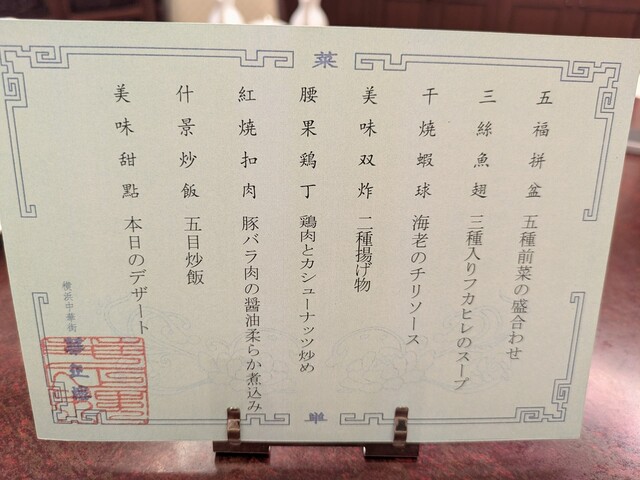 菜
五福拼盆 五種前菜の盛合わせ
三絲魚翅 三種入りフカヒレのスープ
干焼蝦球 海老のチリソース
美味双炸 二種揚げ物
腰果鶏丁 鶏肉とカシューナッツ炒め
紅焼扣肉 豚バラ肉の醤油柔らか煮込み
什景炒飯 五目炒飯
美味甜點 本日のデザート
横浜中華街
単